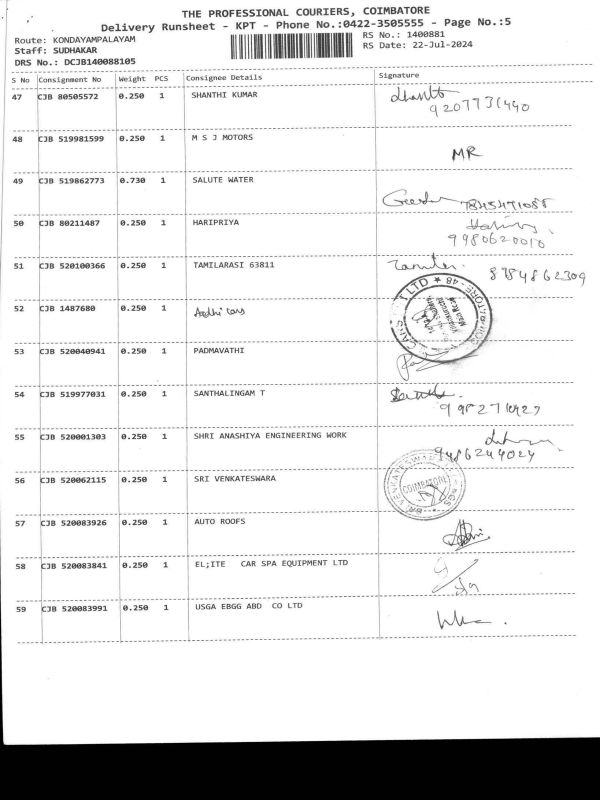 THE PROFESSIONAL COURIERS, COIMBATORE
Delivery Runsheet - KPT - Phone No.:0422-3505555 - Page No.:5
Route: KONDAYAMPALAYAM
RS No.: 1400881
Staff: SUDHAKAR
RS Date: 22-Jul-2024
DRS No.: DCJB140088105
S No Consignment No Weight PCS Consignee Details Signature
47 CJB 80505572 0.250 1 SHANTHI KUMAR
9207731440
48 CJB 519981599 0.250 1 M S J MOTORS MR
49 CJB 519862773 0.730 1 SALUTE WATER
7845471088
50 CJB 80211487 0.250 1 HARIPRIYA
9980620010
51 CJB 520100366 0.250 1 TAMILARASI 63811
8754862309
52 CJB 1487680 0.250 1 Aadhi cars
53 CJB 520040941 0.250 1 PADMAVATHI
54 CJB 519977031 0.250 1 SANTHALINGAM T
55 CJB 520001303 0.250 1 SHRI ANASHIYA ENGINEERING WORK
9486244024
56 CJB 520062115 0.250 1 SRI VENKATESWARA
COIMBATORE
57 CJB 520083926 0.250 1 AUTO ROOFS
58 CJB 520083841 0.250 1 EL;ITE CAR SPA EQUIPMENT LTD
59 CJB 520083991 0.250 1 USGA EBGG ABD CO LTD